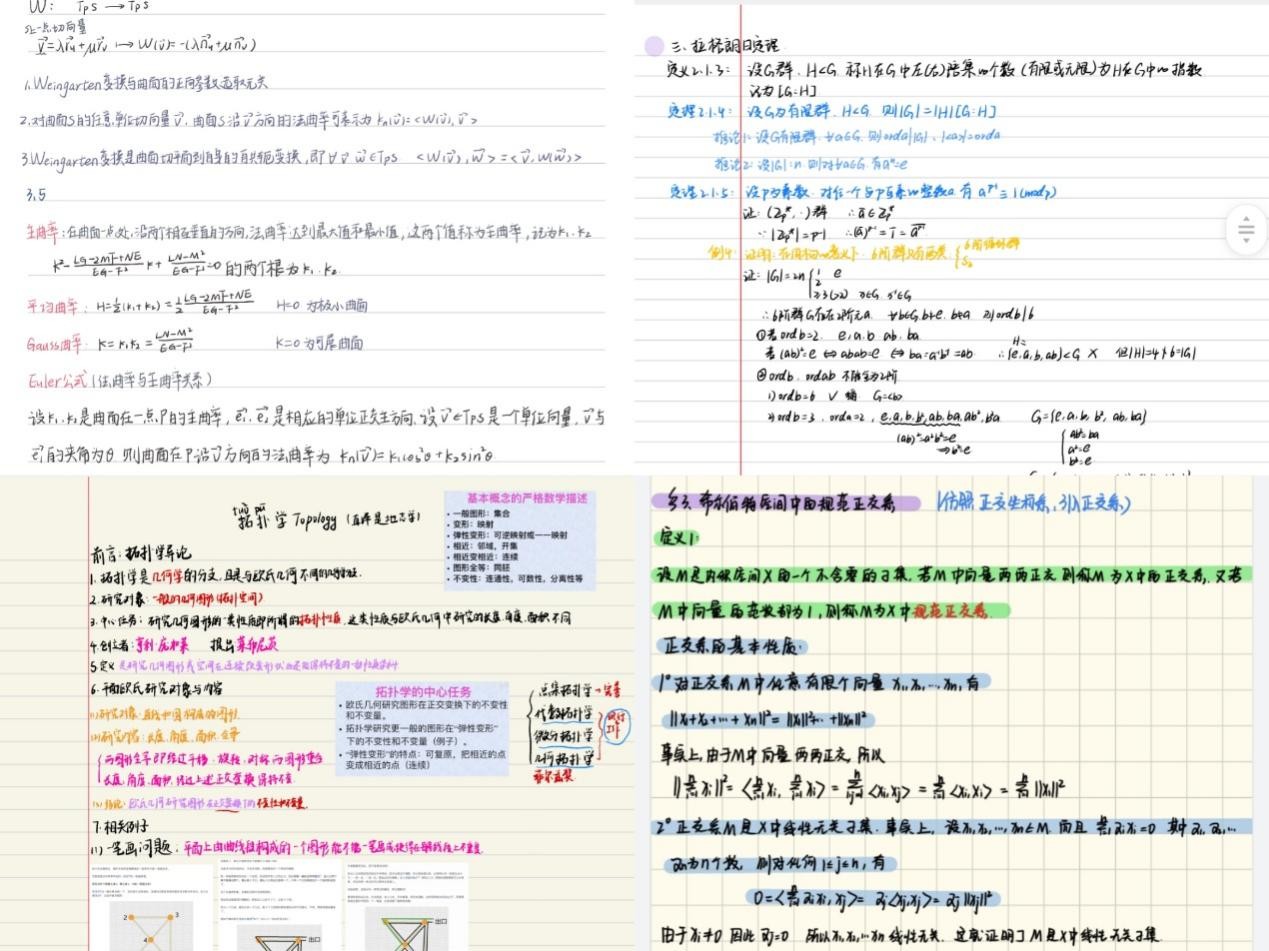 W: TpS → TpS
S上一点切向量
v⃗=λr⃗u+μr⃗v ↦ W(v⃗)=-(λn⃗u+μn⃗v)
1.Weingarten变换与曲面的正向参数选取无关
2.对曲面S的任意单位切向量v⃗,曲面S沿v⃗方向的法曲率可表示为 kn(v⃗)=<W(v⃗),v⃗>
3.Weingarten变换是曲面切平面到自身的自共轭变换,即∀v⃗ w⃗∈TpS <W(v⃗),w⃗>=<v⃗,W(w⃗)>
3,5
主曲率:在曲面一点处,沿两个相互垂直的方向,法曲率达到最大值和最小值,这两个值称为主曲率,记为k1.k2
k²-(LG-2MF+NE)/(EG-F²) k+(LN-M²)/(EG-F²)=0 的两个根为k1.k2.
平均曲率: H=½(k1+k2)=½ (LG-2MF+NE)/(EG-F²) H=0 为极小曲面
Gauss曲率: K=k1k2=(LN-M²)/(EG-F²) K=0为可展曲面
Euler公式(法曲率与主曲率关系)
设k1.k2是曲面在一点P的主曲率,e⃗1.e⃗2是相应的单位正交主方向.设v⃗∈TpS是一个单位向量,v⃗与
e⃗1的夹角为θ 则曲面在P沿v⃗方向的法曲率为 kn(v⃗)=k1cos²θ+k2sin²θ
三、拉格朗日定理
定义2.1.3: 设G群,H<G.称H在G中左(右)陪集的个数(有限或无限)为H在G中的指数
记为[G:H]
定理2.1.4: 设G为有限群,H<G.则|G|=|H|[G:H]
推论1:设G有限群.∀a∈G.则orda||G|.|<a>|=orda
推论2:设|G|=n.则对∀a∈G.有aⁿ=e
定理2.1.5: 设p为素数.对任一个与p互素的整数a.有 aᵖ⁻¹≡1(modp)
证: (Zp*,·)群 ∴a̅∈Zp*
∵|Zp*|=p-1
例4: 证明:在同构的意义下.6阶群只有两类.{6阶循环群
S3
∴6阶群G存在2阶元a. ∀b∈G.b≠e.b≠a 则ordb|6
①若ordb=2. e,a,b ab,ba
若(ab)²=e ⇔abab=e ⇔ba=a⁻¹b⁻¹=ab ∴{e,a,b,ab}<G × 但|H|=4∤6=|G|
H=
②ordb.ordab 不能全为2阶
1)ordb=6 ∨ G=<b>
2)ordb=3,orda=2, e,a,b,b²,ab,ba,ab²,b²a G={e,a,b,b²,ab,ba}
(ab)²=a²b²=e
→b²=e
{ab²=ba
a²=e
b³=e
tuò pū
拓扑学 Topology(直译是地志学)
基本概念的严格数学描述
• 一般图形:集合
• 变形:映射
• 弹性变形:可逆映射或一一映射
• 相近:邻域,开集
• 相近变相近:连续
• 图形全等:同胚
• 不变性:连通性,可数性,分离性等
前言:拓扑学导论
1.拓扑学是几何学的分支,且是与欧氏几何不同的几何学分支.
2.研究对象:一般的几何图形(拓扑空间)
3.中心任务:研究几何图形的一类性质即所谓的拓扑性质,这类性质与欧氏几何中研究的长度.角度.面积不同
4.创立者:亨利·庞加莱 提出莱布尼茨
6.平面欧氏研究对象与内容
(1)研究对象:直线和圆构成的图形.
(2)研究内容:长度,角度,面积,全等
{两图形全等即经过平移.旋转.对称两图形重合
长度,角度,面积,经过上述正交变换,保持不变.
(3)结论:欧氏几何研究图形在正交变换下的不变性和不变量.
拓扑学的中心任务
• 欧氏几何研究图形在正交变换下的不变性和不变量。
• 拓扑学研究更一般的图形在“弹性变形”下的不变性和不变量(例子)。
• “弹性变形”的特点:可复原,把相近的点变成相近的点(连续)
点集拓扑学→完善
代数拓扑学
微分拓扑学
几何拓扑学
7.相关例子
(1)一笔画问题:平面上由曲线段构成的一个图形能不能一笔画成使得在每条线段上不重复.
2
3
4
出口
出口
§3.希尔伯特空间中的规范正交系 (仿照正交坐标系,引入正交系)
定义1:
设M是内积空间X的一个不含零的子集.若M中向量两两正交,则称M为X中的正交系,又若
M中向量的范数都为1,则称M为X中规范正交系.
正交系的基本性质:
1°对正交系M中任意有限个向量 x1,x2,…xn,有
‖x1+x2+…+xn‖²=‖x1‖²+…+‖xn‖²
事实上,由于M中向量两两正交,所以
‖∑xi‖²=<∑xi,∑xi>=∑<xi,xj>=∑<xi,xi>=∑‖xi‖²
2°正交系M是X中线性无关子集.事实上,设x1,x2,…,xn∈M 而且∑αixi=0 其中α1,α2,…
αn为n个数,则对任何1≤j≤n,有
0=<∑αixi,xj>=αj<xj,xj>=αj‖xj‖²
由于xj≠0 因此αj=0 所以x1,x2,…xn线性无关.这就证明了M是X中线性无关子集.